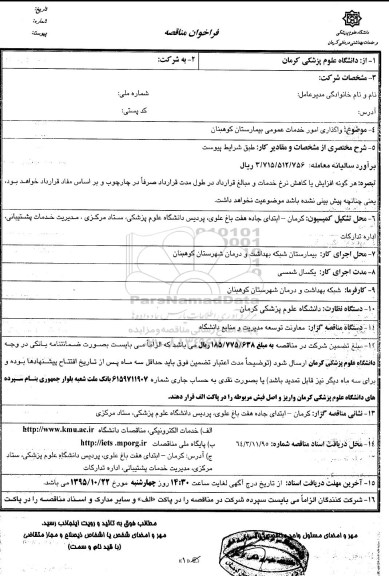 تاریخ:
شماره:
پیوست:
فراخوان مناقصه
دانشگاه علوم پزشکی
و خدمات بهداشتی درمانی کرمان
۱- از: دانشگاه علوم پزشکی کرمان
۲- به شرکت:
۳- مشخصات شرکت:
نام و نام خانوادگی مدیرعامل: شماره ملی:
آدرس: کد پستی:
۴- موضوع: واگذاری امور خدمات عمومی بیمارستان کوهبنان
۵- شرح مختصری از مشخصات و مقادیر کار: طبق شرایط پیوست
برآورد سالیانه معامله: ۳/۷۱۵/۵۱۲/۷۵۶ ریال
تبصره: هر گونه افزایش یا کاهش نرخ خدمات و مبالغ قرارداد در طول مدت قرارداد صرفاً در چارچوب و بر اساس مفاد قرارداد خواهد بود،
یعنی چنانچه پیش بینی نشده باشد موضوعیت نخواهد داشت.
۶- محل تشکیل کمیسیون: کرمان – ابتدای جاده هفت باغ علوی، پردیس دانشگاه علوم پزشکی، ستاد مرکزی، مدیریت خدمات پشتیبانی،
اداره تدارکات
۷- محل اجرای کار: بیمارستان شبکه بهداشت و درمان شهرستان کوهبنان
۸- مدت اجرای کار: یکسال شمسی
۹- کارفرما: شبکه بهداشت و درمان شهرستان کوهبنان
۱۰- دستگاه نظارت: دانشگاه علوم پزشکی کرمان
۱۱- دستگاه مناقصه گزار: معاونت توسعه مدیریت و منابع دانشگاه
۱۲- مبلغ تضمین شرکت در مناقصه به مبلغ ۱۸۵/۷۷۵/۶۳۸ ریال می باشد که الزاماً می بایست بصورت ضمانتنامه بانکی در وجه
دانشگاه علوم پزشکی کرمان ارسال شود (توضیحاً مدت اعتبار تضمین فوق باید حداقل سه ماه پس از تاریخ افتتاح پیشنهادها بوده و
برای سه ماه دیگر نیز قابل تمدید باشد) یا بصورت نقدی به حساب جاری شماره ۶۱۵۹۷۱۱۹۰۷ بانک ملت شعبه بلوار جمهوری بنام سپرده
های دانشگاه علوم پزشکی کرمان واریز و اصل فیش مربوطه را در پاکت الف قرار دهند.
۱۳- نشانی مناقصه گزار: کرمان – ابتدای جاده هفت باغ علوی، پردیس دانشگاه علوم پزشکی، ستاد مرکزی
۱۴- محل دریافت اسناد مناقصه شماره: ۹۴/۳/۱۱/۹۵
الف) خدمات الکترونیکی، مناقصات دانشگاه http://www.kmu.ac.ir
ب) پایگاه ملی مناقصات http://iets.mporg.ir
ج) آدرس: کرمان – ابتدای هفت باغ علوی، پردیس دانشگاه علوم پزشکی، ستاد
مرکزی، مدیریت خدمات پشتیبانی، اداره تدارکات
۱۵- آخرین مهلت دریافت اسناد: از تاریخ درج آگهی لغایت ساعت ۱۴:۳۰ روز چهارشنبه مورخ ۱۳۹۵/۱۰/۲۲ می باشد.
۱۶- شرکت کنندگان الزاماً می بایست سپرده شرکت در مناقصه را در پاکت «الف» و سایر مدارک و اسناد مناقصه را در پاکت
مطالب فوق به تائید و رویت اینجانب رسید.
مهر و امضای شخص یا اشخاص ذیصلاح و مجاز متقاضی
(با قید نام و سمت)
مهر و امضای مسئول
«۱»
ParsNamadData